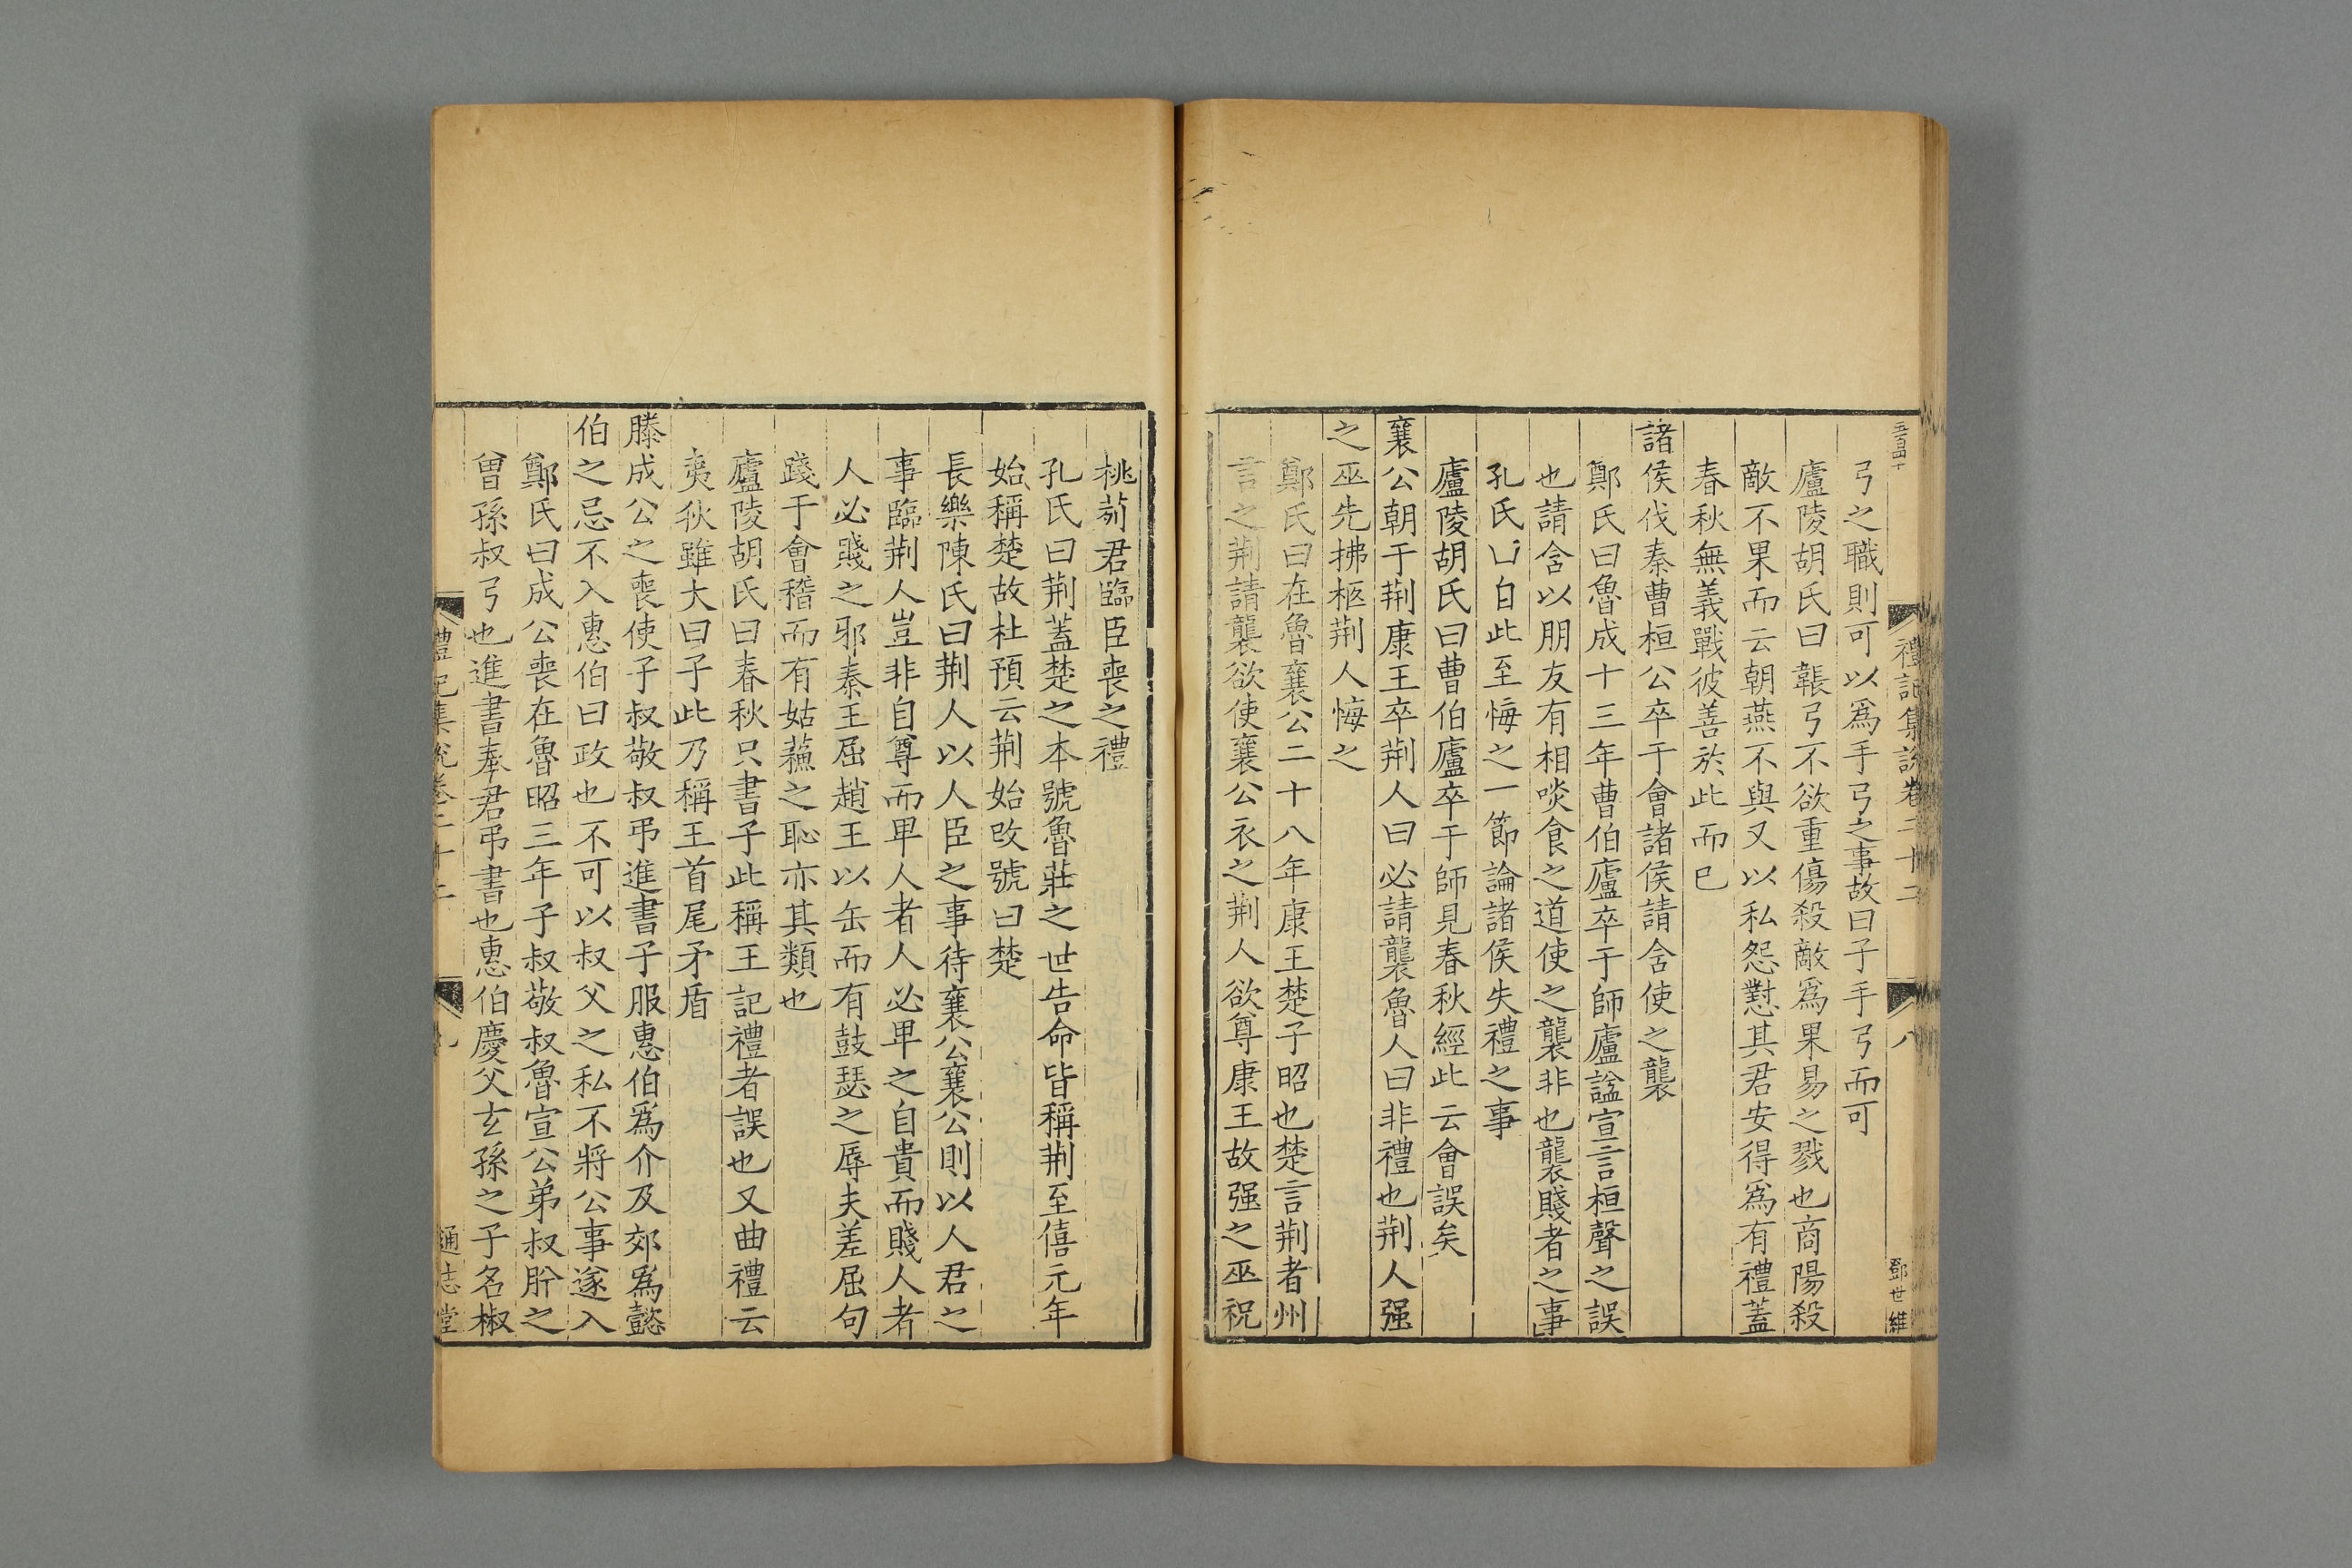 弓之職則可以爲手弓之事故曰子手弓而可
廬陵胡氏曰韔弓不欲重傷殺敵爲果易之戮也商陽殺
敵不果而云朝燕不與又以私怨懟其君安得爲有禮蓋
春秋無義戰彼善於此而已
諸侯伐秦曹桓公卒于會諸侯請含使之襲
鄭氏曰魯成十三年曹伯廬卒于師廬謚宣言桓聲之誤
也請含以朋友有相啖食之道使之襲非也襲賤者之事
孔氏曰自此至悔之一節論諸侯失禮之事
廬陵胡氏曰曹伯廬卒于師見春秋經此云會誤矣
襄公朝于荆康王卒荆人曰必請襲魯人曰非禮也荆人强
之巫先拂柩荆人悔之
鄭氏曰在魯襄公二十八年康王楚子昭也楚言荆者州
言之荆請襲欲使襄公衣之荆人欲尊康王故强之巫祝
禮記集說卷二十二
八
鄧世維
桃茢君臨臣喪之禮
孔氏曰荆蓋楚之本號魯莊之世告命皆稱荆至僖元年
始稱楚故杜預云荆始改號曰楚
長樂陳氏曰荆人以人臣之事待襄公襄公則以人君之
事臨荆人豈非自尊而卑人者人必卑之自貴而賤人者
人必賤之邪秦王屈趙王以缶而有鼓瑟之辱夫差屈句
踐于會稽而有姑蘓之恥亦其類也
廬陵胡氏曰春秋只書子此稱王記禮者誤也又曲禮云
夷狄雖大曰子此乃稱王首尾矛盾
滕成公之喪使子叔敬叔弔進書子服惠伯爲介及郊爲懿
伯之忌不入惠伯曰政也不可以叔父之私不將公事遂入
鄭氏曰成公喪在魯昭三年子叔敬叔魯宣公弟叔肸之
曾孫叔弓也進書奉君弔書也惠伯慶父玄孫之子名椒
禮記集說卷二十二
九
通志堂